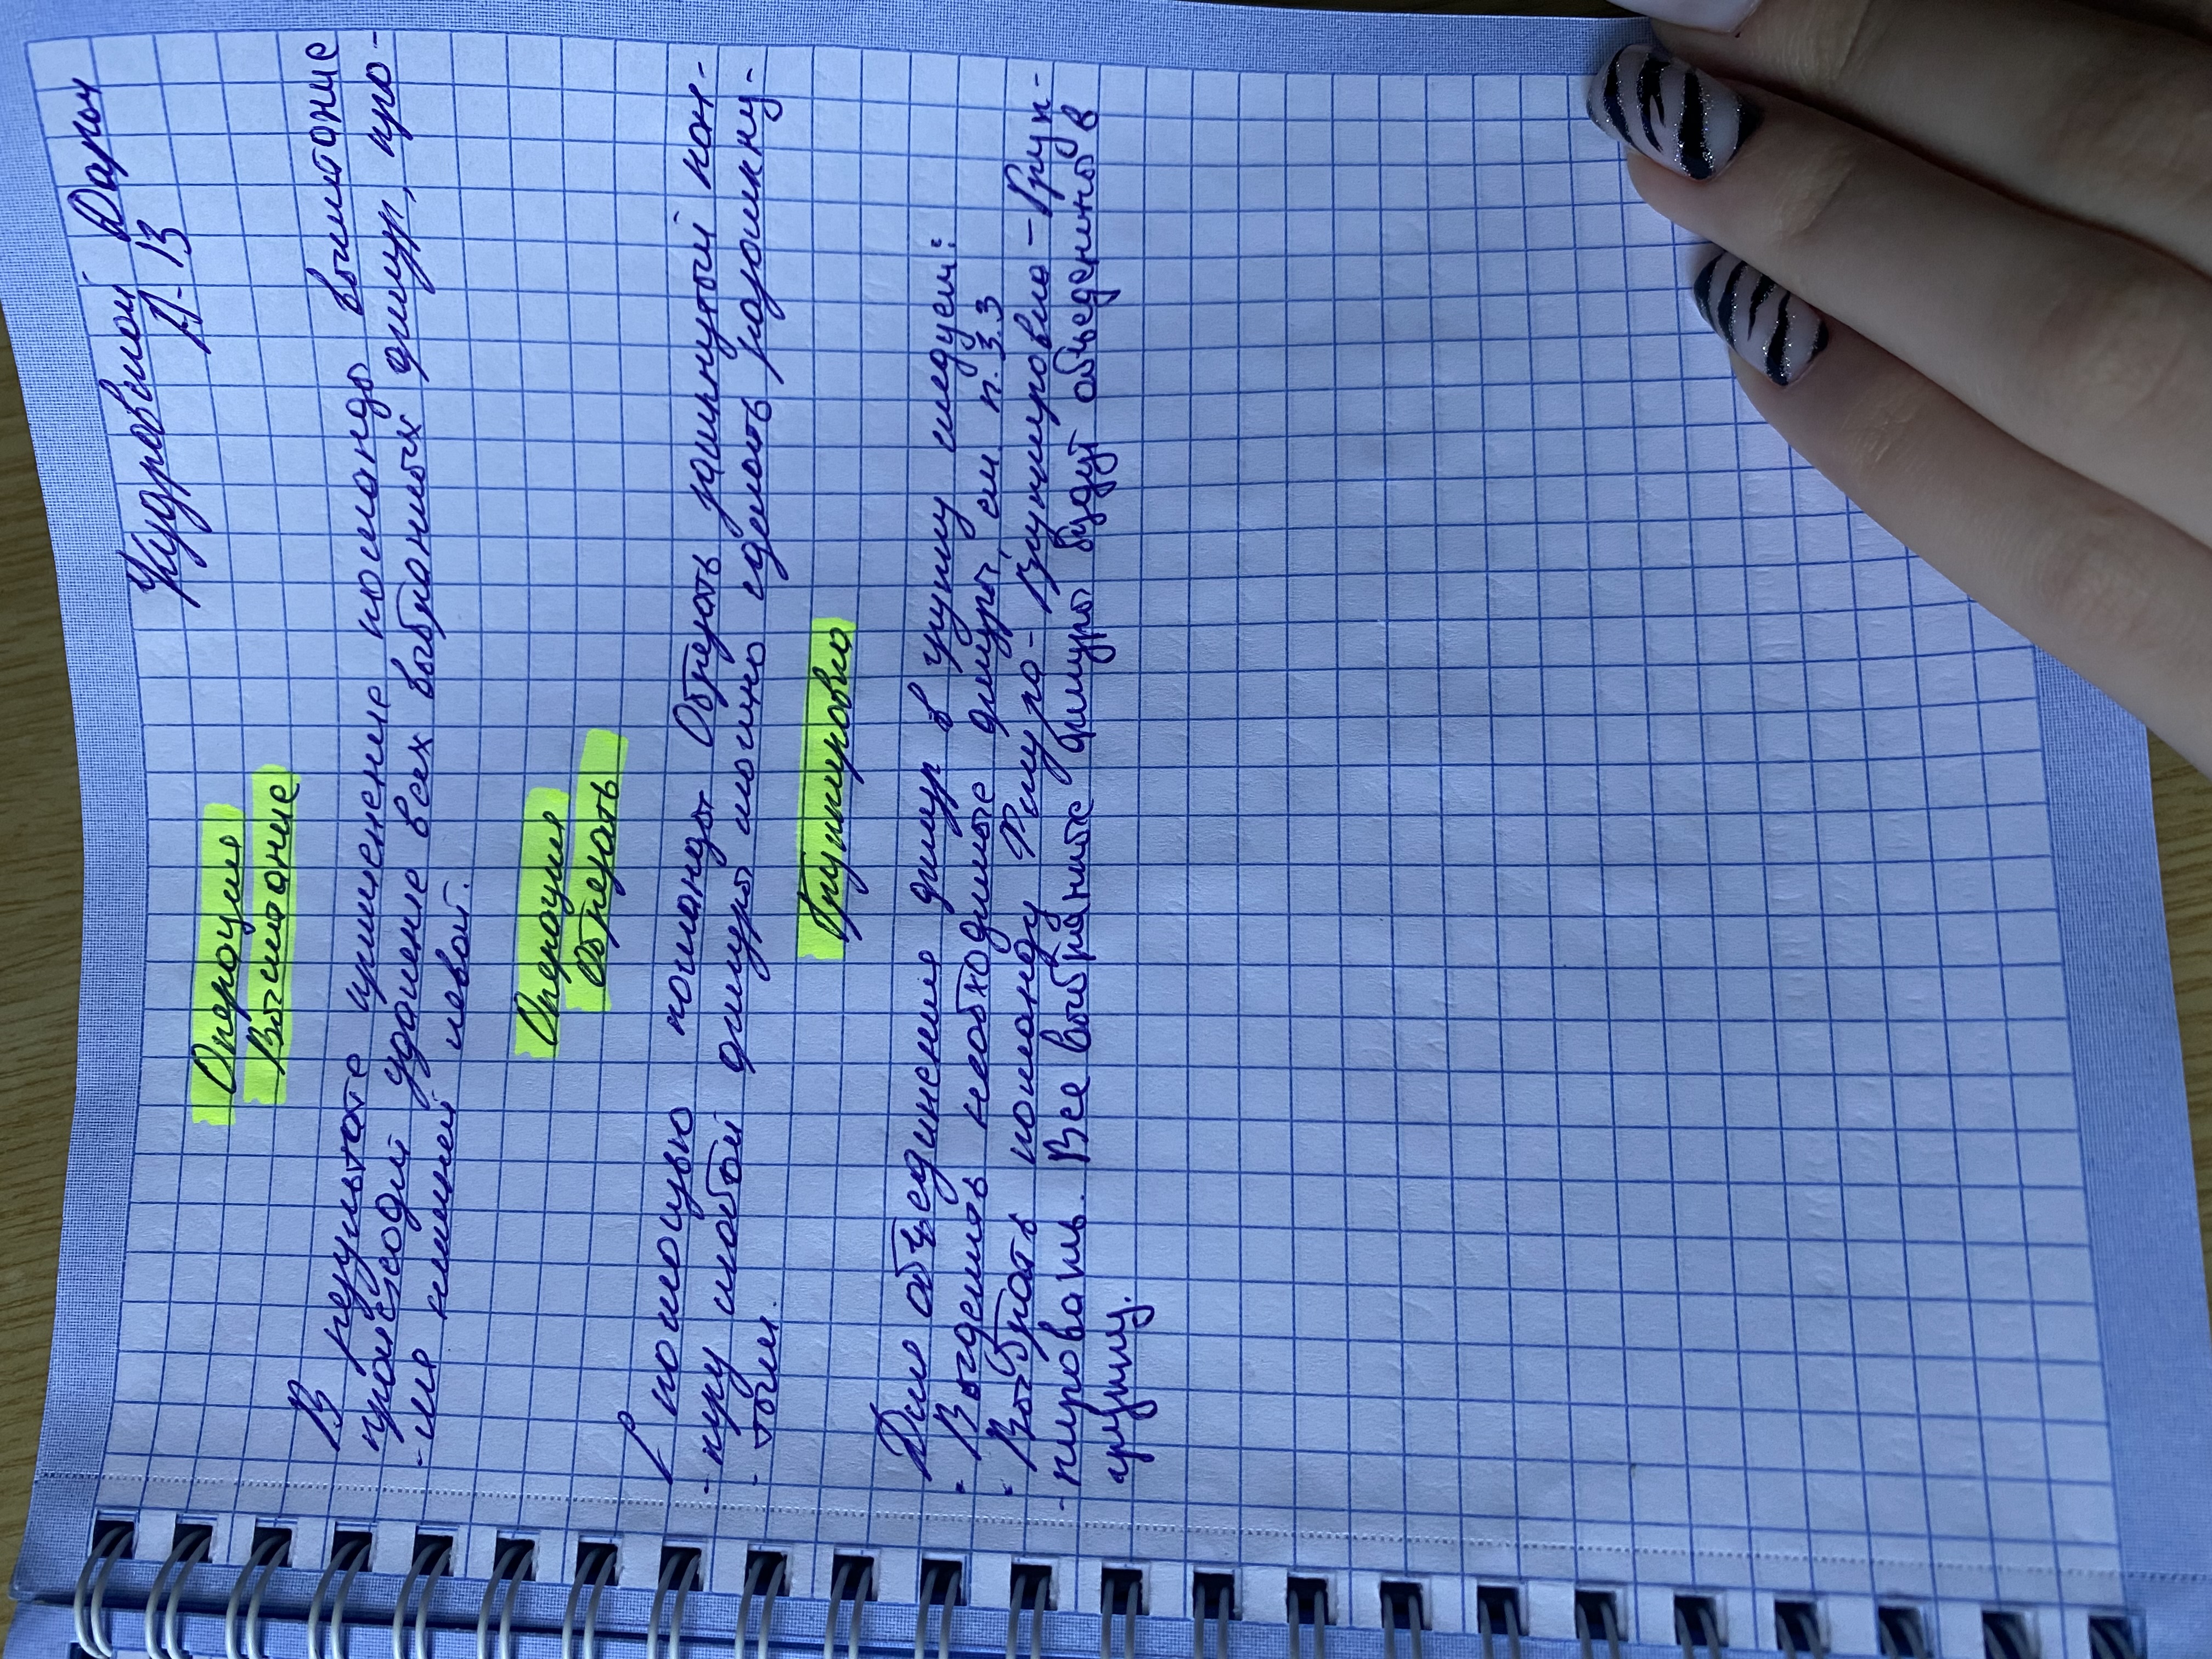 Кудрявской Дарьи
Д-13
Операция
Вычитание
В результате применение команды вычитание
происходит удаление всех выбранных фигур, кро-
-ме нижней левой.
Операция
Обрезать
С помощью команды Обрезать замкнутый кон-
-туру любой фигуры можно сделать разомкну-
-тым.
Группировка
Для объединения фигур в группу следует:
· Выделить необходимые фигуры, см п. 3.3
· Выбрать команду Фигура - Группировка - Груп-
-пировать. Все выбранные фигуры будут объединены в
группу.